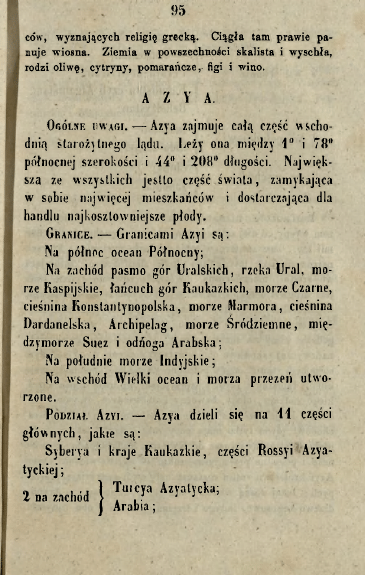 95
ców, wyznających religię grecką. Ciągła tam prawie pa-
nuje wiosna. Ziemia w powszechności skalista i wyschła,
rodzi oliwę, cytryny, pomarańcze, figi i wino.
A Z Y A.
OGÓLNE UWAGI. — Azya zajmuje całą część wscho-
dnią starożytnego lądu. Leży ona między 1° i 78°
północnej szerokości i 44° i 208° długości. Najwięk-
sza ze wszystkich jestto część świata, zamykająca
w sobie najwięcej mieszkańców i dostarczająca dla
handlu najkosztowniejsze płody.
GRANICE. — Granicami Azyi są:
Na północ ocean Północny;
Na zachód pasmo gór Uralskich, rzeka Ural, mo-
rze Kaspijskie, łańcuch gór Kaukazkich, morze Czarne,
cieśnina Konstantynopolska, morze Marmora, cieśnina
Dardanelska, Archipelag, morze Śródziemne, mię-
dzymorze Suez i odnoga Arabska;
Na południe morze Indyjskie;
Na wschód Wielki ocean i morza przezeń utwo-
rzone.
PODZIAŁ AZYI. — Azya dzieli się na 11 części
głównych, jakie są:
Syberya i kraje Kaukazkie, części Rossyi Azya-
tyckiej;
2 na zachód } Turcya Azyatycka;
Arabia;